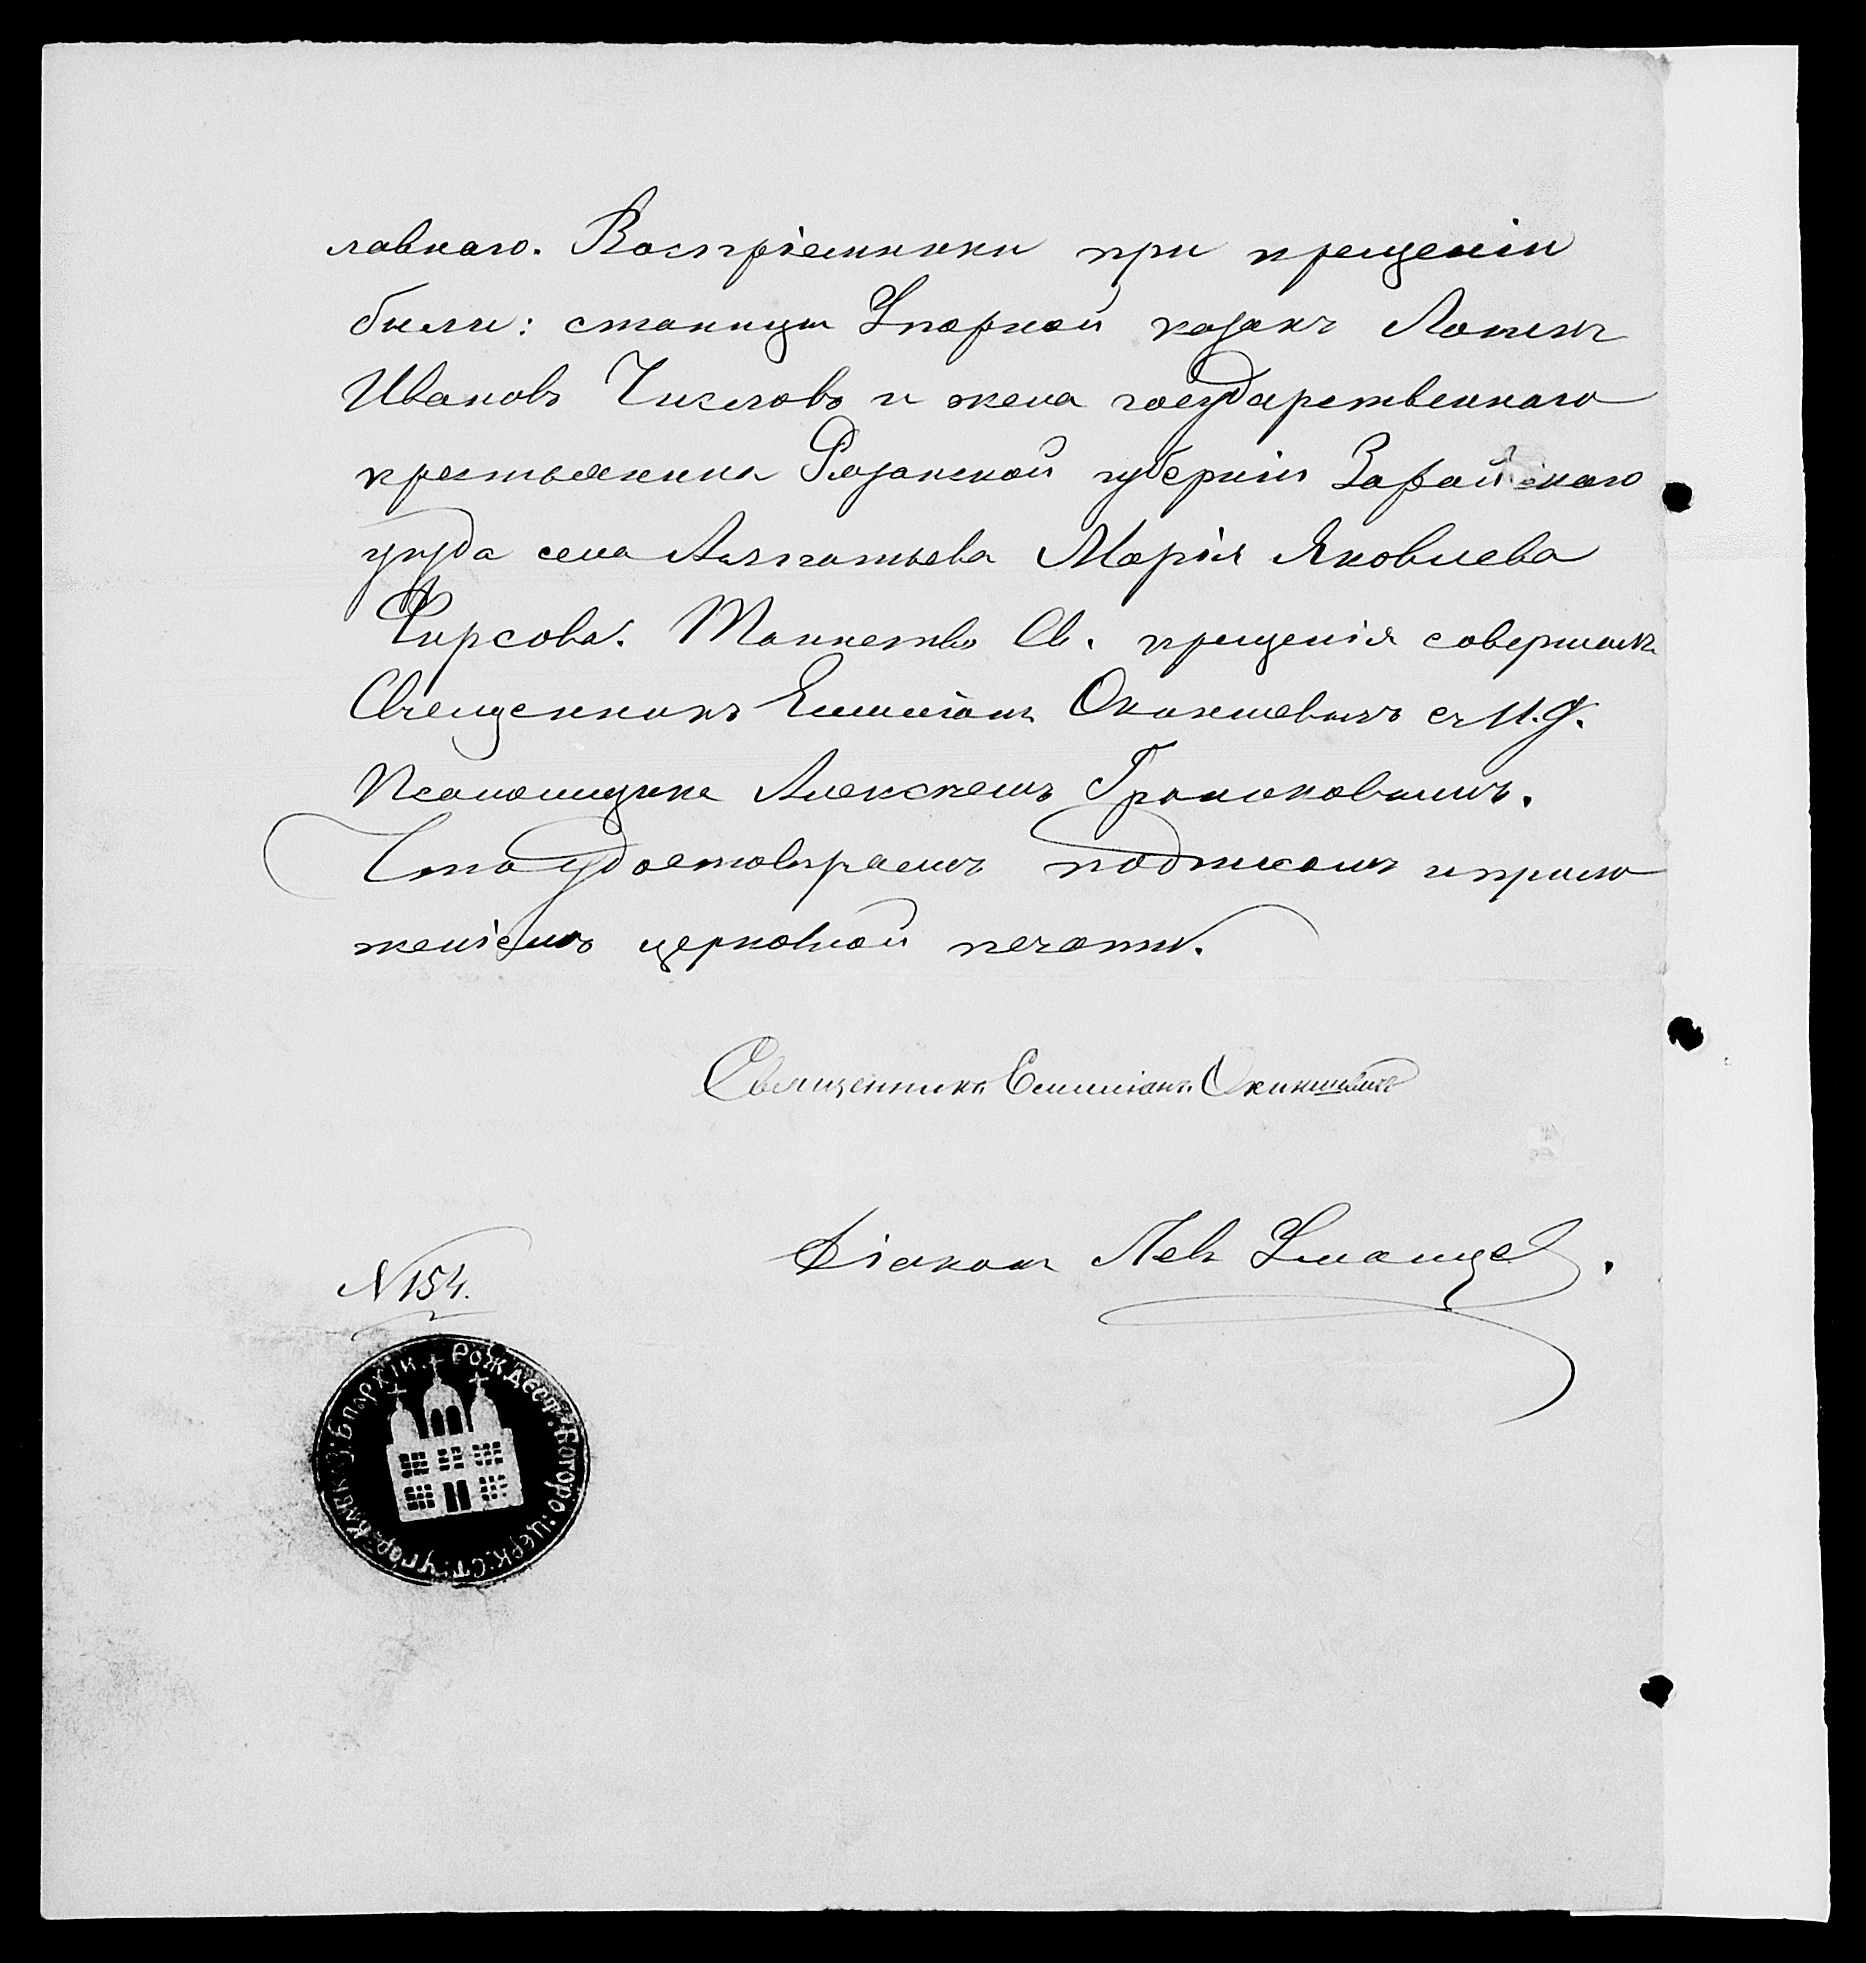 лавнаго. Воспріемники при крещеніи
были: станицы Упорной козакъ Логинъ
Ивановъ Чикловъ и жена государственнаго
крестьянина Рязанской губерніи Зарайскаго
уѣзда села Алпатьева Марія Яковлева
Фирсова. Таинство Св. крещенія совершилъ
Священникъ Емиліанъ Окиншевичъ съ И. д.
Псаломщика Алексѣемъ
Что удостовѣряемъ подписомъ и прило
женіемъ церковной печати.
Священникъ Емиліанъ Окиншевичъ
Діаконъ Левъ Уманцев.
N 154.
Кавказ: Епархіи. + Рождест: Богоро: Церк: Ст: Упор: